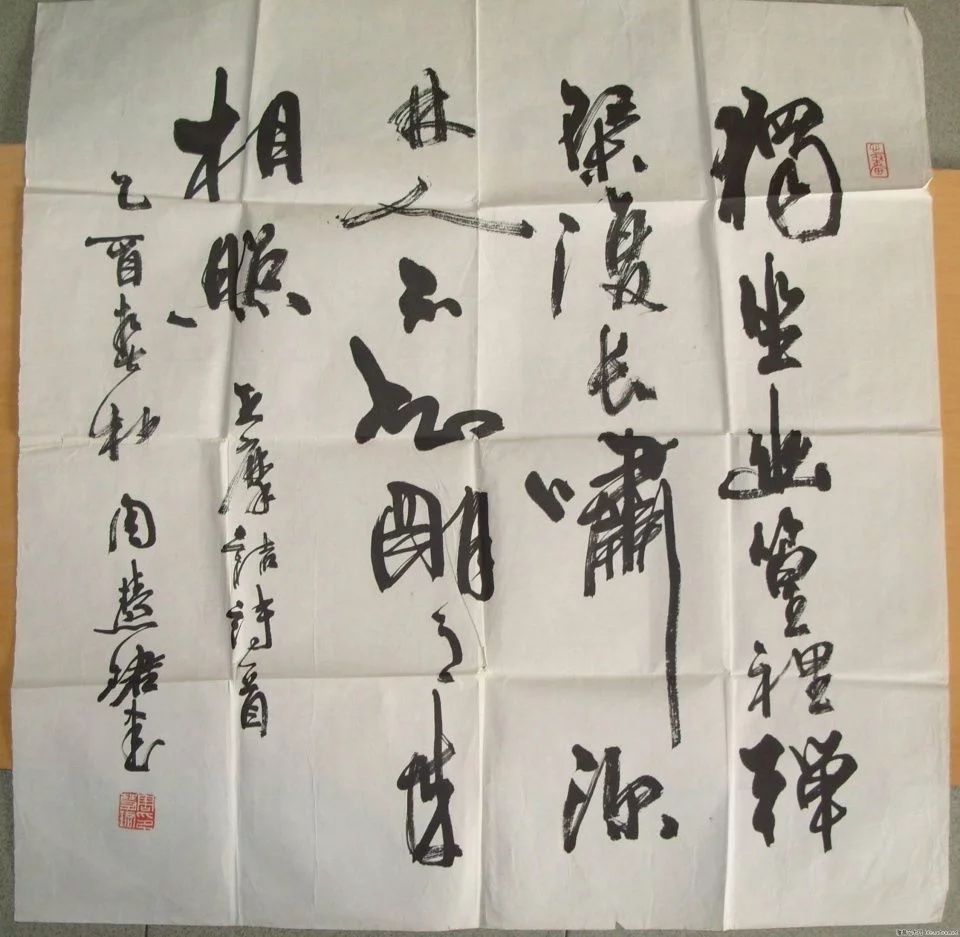 獨坐幽篁裡彈
琴復长嘯深
林人不知明月来
相照 王摩詰詩一首
乙酉春杪 周慧珺書